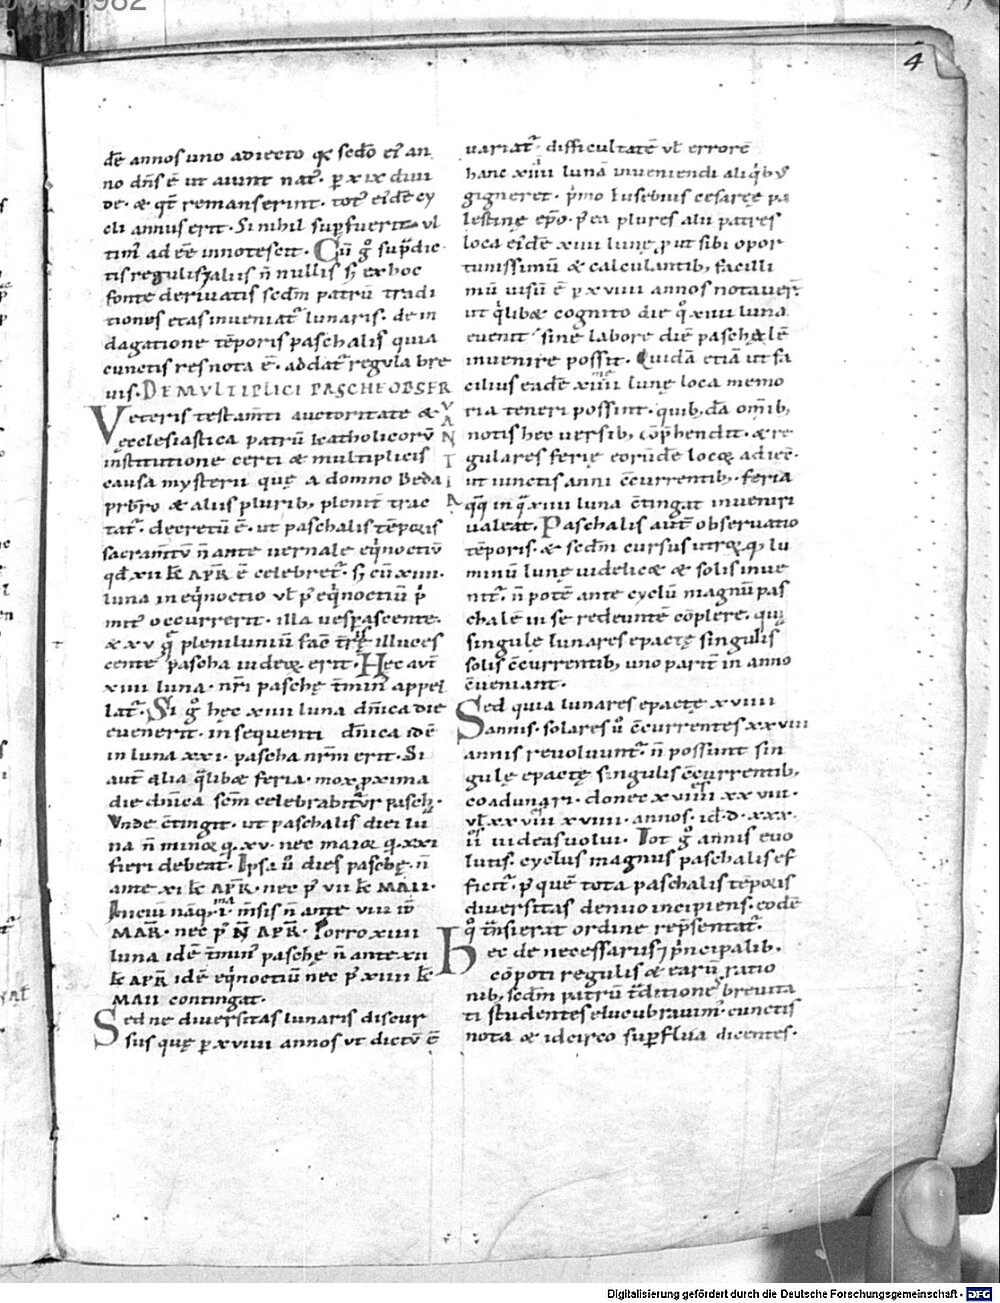 4
dē annos uno adiecto qꝛ scdō ei͛ an
no dn̄s ē ut aiunt nat᷑. ꝑ xix diui
de. & qt̄ remanserint. tot᷑ ei͛dē cy
cli annus erit. Si nihil supfuerit vl
tim᷑ adēē innotescit. Cū g̊ sup̄dic
tis regulis ⁊ aliis n̄ nullis sꝫ ex hoc
fonte deriuatis scdm̄ patrū tradi
tiones etas inueniat᷑ lunaris. de in
dagatione tēporis paschalis quia
cunctis res nota ē. addat᷑ regula bre
uis. DE MULTIPLICI PASCHE OBSER
VANTIA
Veteris testam̄ti auctoritate &
ęcclesiastica patrū katholicorū
institutione certi & multiplicis
causa mysterii quę a domno Beda
prb̄ro & aliis plurib, plenit᷑ trac
tat᷑. decretū ē. ut paschalis tēporis
sacram̄tū n̄ ante uernale eq̇noctiū
qd̄ xii kl̄ APR̄ ē celebret᷑. sꝫ cū xiiii.
luna in eq̇noctio vl̄ p᷑ eq̇noctiū p̊
mit᷑ occurrerit. illa uespascente.
& xv q̄ plenilunium facē t̄rę illuces
cente pascha iudeoꝝ erit. Hec aut̄
xiiii luna. nr̄i paschę t̄min᷑ appel
lat᷑. Si g̊ hęc xiiii luna dn̄ica die
euenerit. in sequenti dn̄ica idē
in luna xxi. pascha nr̄m erit. Si
aut̄ alia q̄libꝫ feria. mox ꝓxima
die dn̄ica sēm celebrabitur pasch.
Unde c̄tingit. ut paschalis diei lu
na n̄ minor q̄. xv. nec maior q̄. xxi
fieri debeat. Ipsa u̇ dies paschę. n̄
ante xi kl̄ APR̄. nec p᷑ vii kl̄ MAII.
Incium nāq. i. mn̄sis n̄ ante viii id̄
MAR̄. nec p᷑ N̄ APR̄. Porro xiiii
luna idē t̄min᷑ paschę n̄ ante xii
kl̄ APR̄ idē eq̇noctiū nec p᷑ xiiii kl̄
MAII contingat.
Sed ne diuersitas lunaris discur
sus quę ꝑ xviiii annos ut dictū ē
uariat᷑. difficultatē vl̄ errorē
hanc xiiii lunā inueniendi aliq̇b᷒
gigneret. p̊mo Eusebius cesaręę pa
lestinę ep̄o. p᷑ea plures alii patres
loca ei͛dē xiiii lunę ꝓut sibi opor
tunissimū & calculantib, facilli
mū uisū ē ꝑ xviiii annos notauer̄.
ut q̄libꝫ cognito die q̊ xiiii luna
euenit sine labore diē paschalē
inuenire possit. Quidā etiā ut fa
cilius eadē xiiii lunę loca memo
ria teneri possint. quib,dā om̄ib,
notis hec uersib, cōp̄hendit. & re
gulares ferię eorūdē locoꝝ adiec᷑.
ut iunctis anni c̄currentib,. feria
qq̄ in q̄ xiiii luna c̄tingat inueniri
ualeat. Paschalis aut̄ obseruatio
tēporis. & scdm̄ cursus utroꝝq; lu
minū lunę uidelicꝫ & solis inue
nit᷑. n̄ potē ante cyclū magnū pas
chalē in se redeuntē cōplere. quę
singulę lunares epactę singulis
solis c̄currentib, uno parit᷑ in anno
c̄ueniant.
Sed quia lunares epactę xviiii
annis. solares u̇ c̄currentes xxviii
annis reuoluunt᷑. n̄ possunt sin
gulę epactę singulis c̄currentib,
coadunari. donec xviiii xxviii.
vl̄ xxviii xviiii. annos. id̄. d. xxx.
ii uideas uolui. Tot g̊ annis euo
lutis. cyclus magnus paschalis ef
ficit᷑. p᷑ quē tota paschalis tēporis
diuersitas denuo incipiens. eodē
q̊ t̄nsierat ordine rep̄sentat᷑.
Hec de necessariis ⁊ p̊ncipalib,
cōpoti regulis & earū ratio
nib, scdm̄ patrū t̄ditione breuita
ti studentes elucubrauim᷒. cunctis
nota & idcirco supflua dicentes.
Digitalisierung gefördert durch die Deutsche Forschungsgemeinschaft - DFG